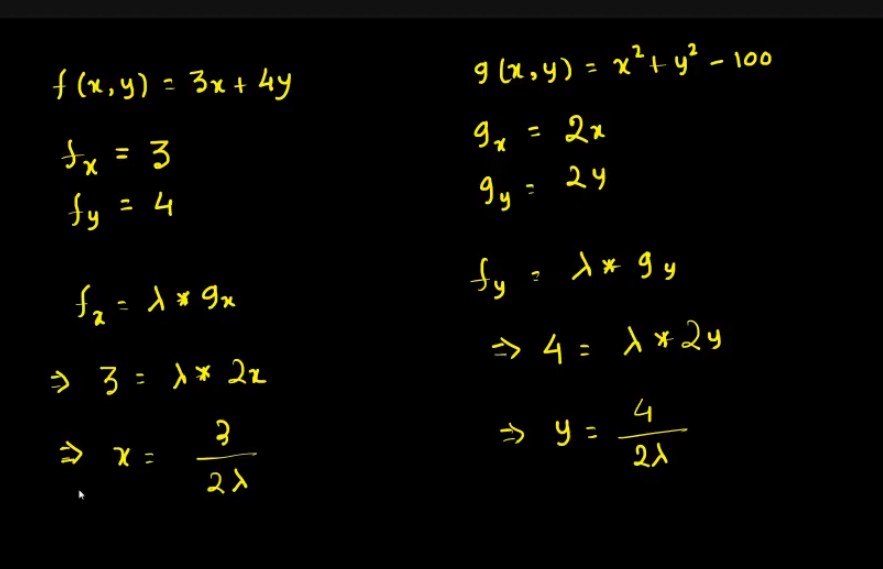 f(x,y) = 3x + 4y
f_x = 3
f_y = 4
f_x = λ * g_x
⇒ 3 = λ * 2x
⇒ x = 3/2λ
g(x,y) = x² + y² - 100
g_x = 2x
g_y = 2y
f_y = λ * g_y
⇒ 4 = λ * 2y
⇒ y = 4/2λ